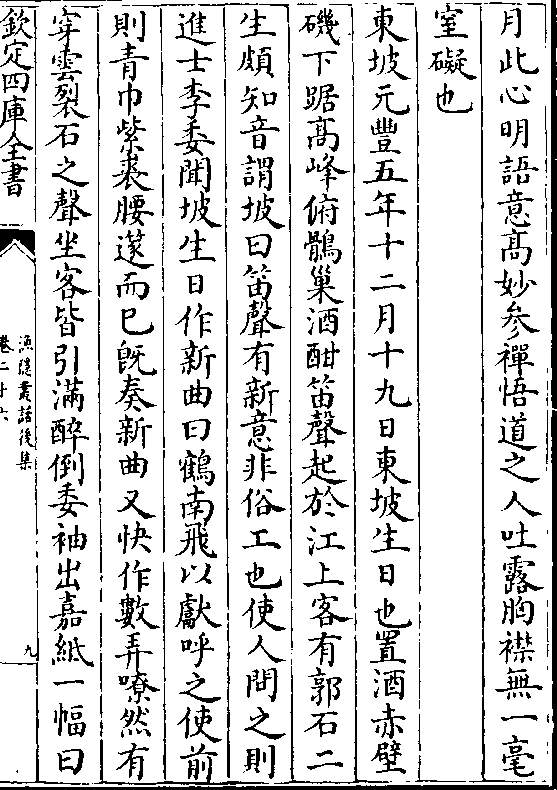 月此心明語意髙妙参禪悟道之人吐露胸襟無一毫
窒礙也
東坡元豐五年十二月十九日東坡生日也置酒赤壁
磯下踞髙峰俯鶻巢酒酣笛聲起於江上客有郭石二
生頗知音謂坡曰笛聲有新意非俗工也使人問之則
進士李委聞坡生日作新曲曰鶴南飛以獻呼之使前
則青巾紫裘腰篴而已旣奏新曲又快作數弄嘹然有
穿雲裂石之聲坐客皆引滿醉倒委袖出嘉紙一幅曰
欽定四庫全書
漁隱叢話後集
卷二十六
九